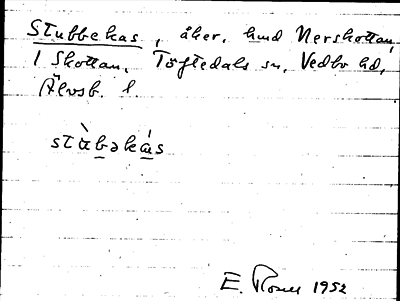 Stubbekas, åker, hmd Nerskottan,
1 Skottan, Töftedals sn, Vedbo hd,
Älvsb. l.
stὰbəkás
E. 1952